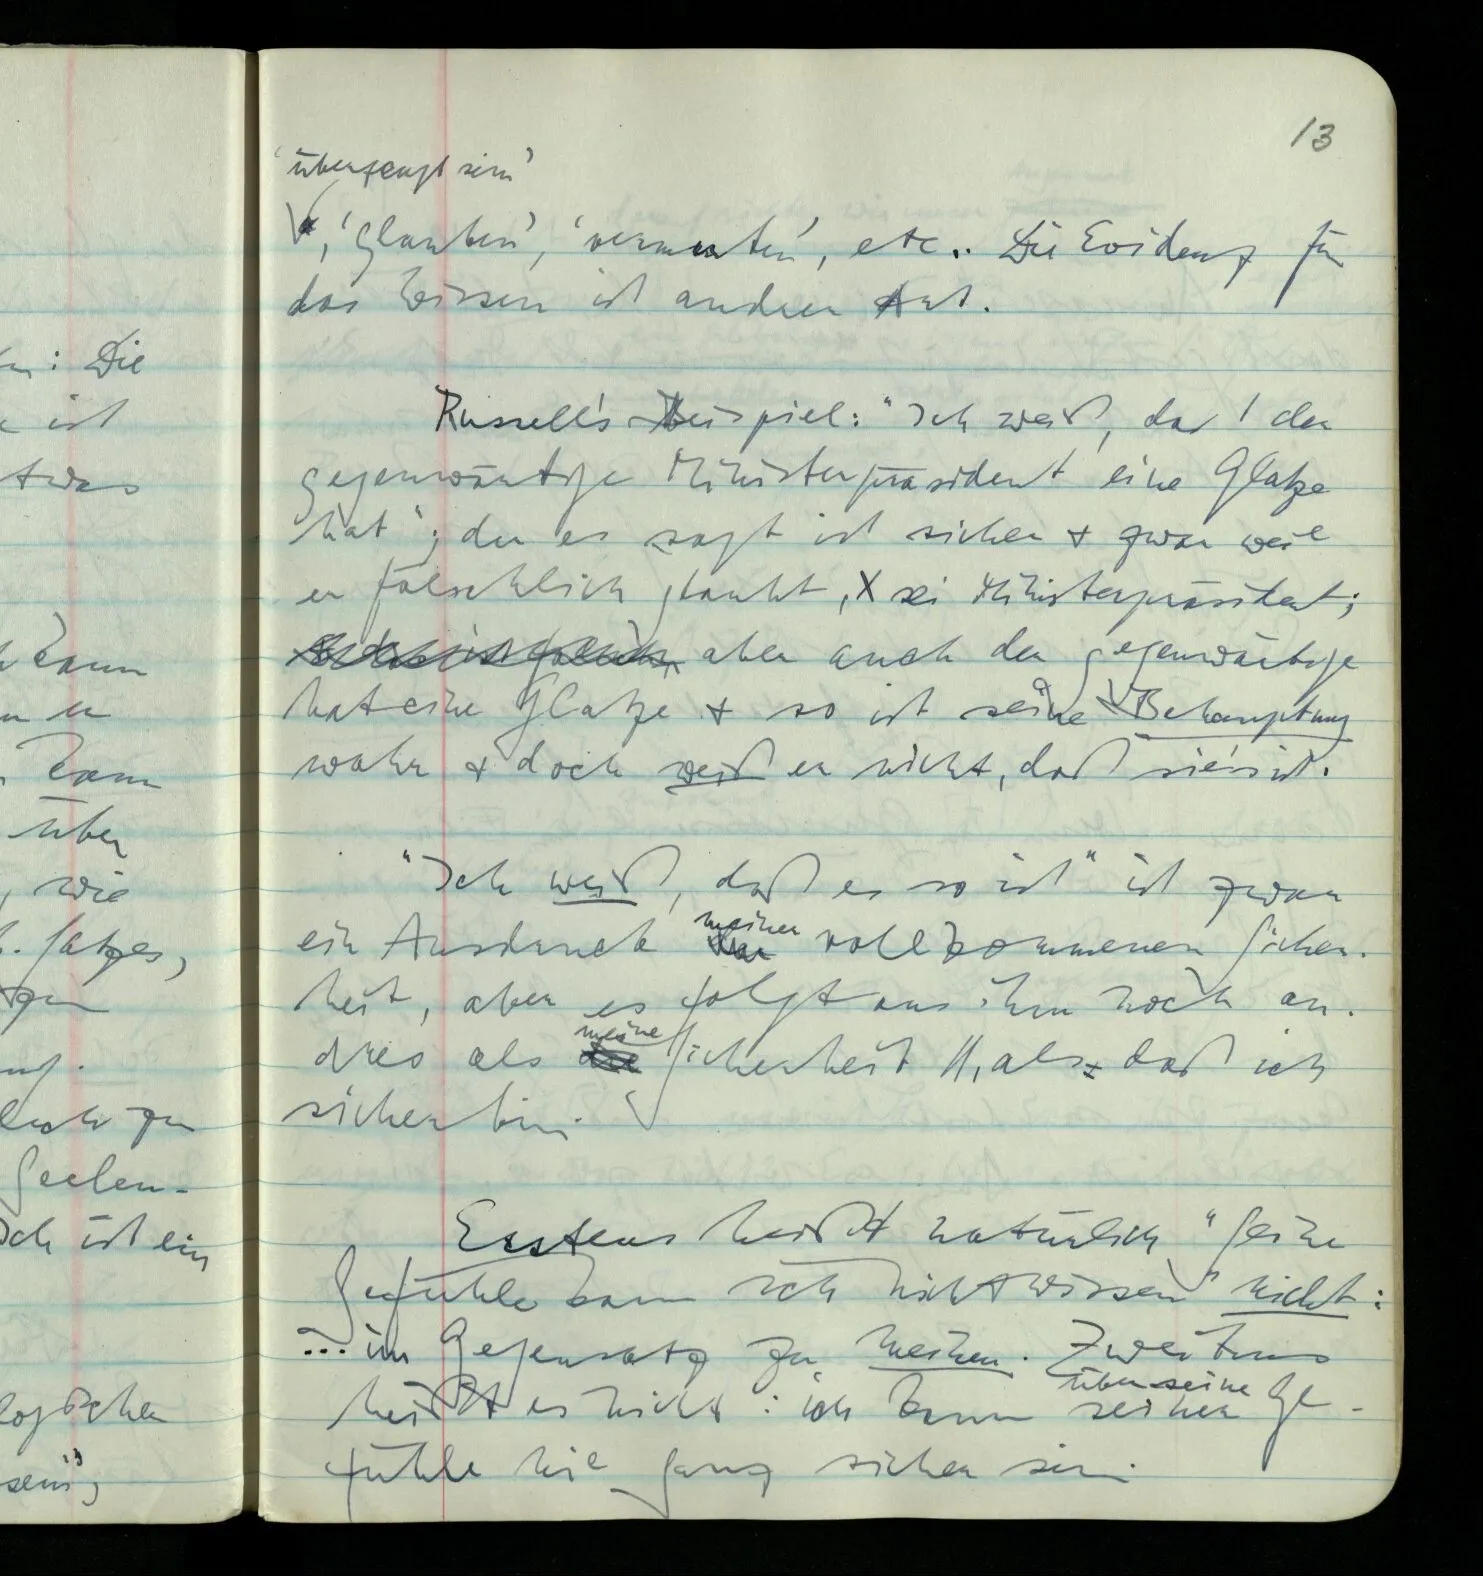 13
'überzeugt sein'
, 'glauben', 'vermuten', etc.. Die Evidenz für
das Wissen ist andrer Art.
Russell's Beispiel: "Ich weiß, daß der
gegenwärtige Ministerpräsident eine Glatze
hat"; der es sagt ist sicher & zwar weil
er fälschlich glaubt, X sei Ministerpräsident;
aber auch der gegenwärtige
hat eine Glatze & so ist seine Behauptung
wahr & doch weiß er nicht, daß sie's ist.
"Ich weiß, daß es so ist" ist zwar
ein Ausdruck meiner vollkommenen Sicher-
heit, aber es folgt aus ihm noch an-
dres als meine Sicherheit //, als daß ich
sicher bin.
Erstens heißt natürlich "Seine
Gefühle kann ich nicht wissen" nicht:
... im Gegensatz zu meinen. Zweitens
heißt es nicht: ich kann über seine seiner Ge-
fühle nie ganz sicher sein.
: Die
ist
etwas
kann
er
kann
über
, wie
Satzes,
zu
Seelen-
Ich ist ein
logischen
sein",